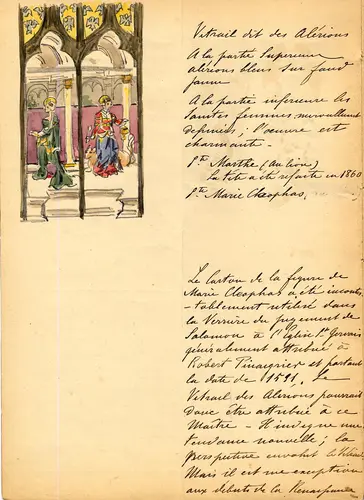 Vitrail dit des Alérions
A la partie Superieure
alérions bleus sur fond
jaune
A la partie inferieure les
Saintes femmes
; l'oeuvre est
charmante -
Ste Marthe (au lion)
la tête a été refaite en 1860
Ste Marie Cleophas.
Le Carton de la figure de
Marie Cleophas a été incontes
-tablement utilisé dans
la Verrière du jugement de
Salomon à l'Eglise St Gervais
généralement attribuée à
Robert Pinaigrier et portant
la date de 1531, Le
Vitrail des Alerions pourrait
donc être attribué à ce
Maître - Il indique une
tendance nouvelle; la
perspective envahit le Vitrail
Mais il est une exception
aux débuts de la Renaissance